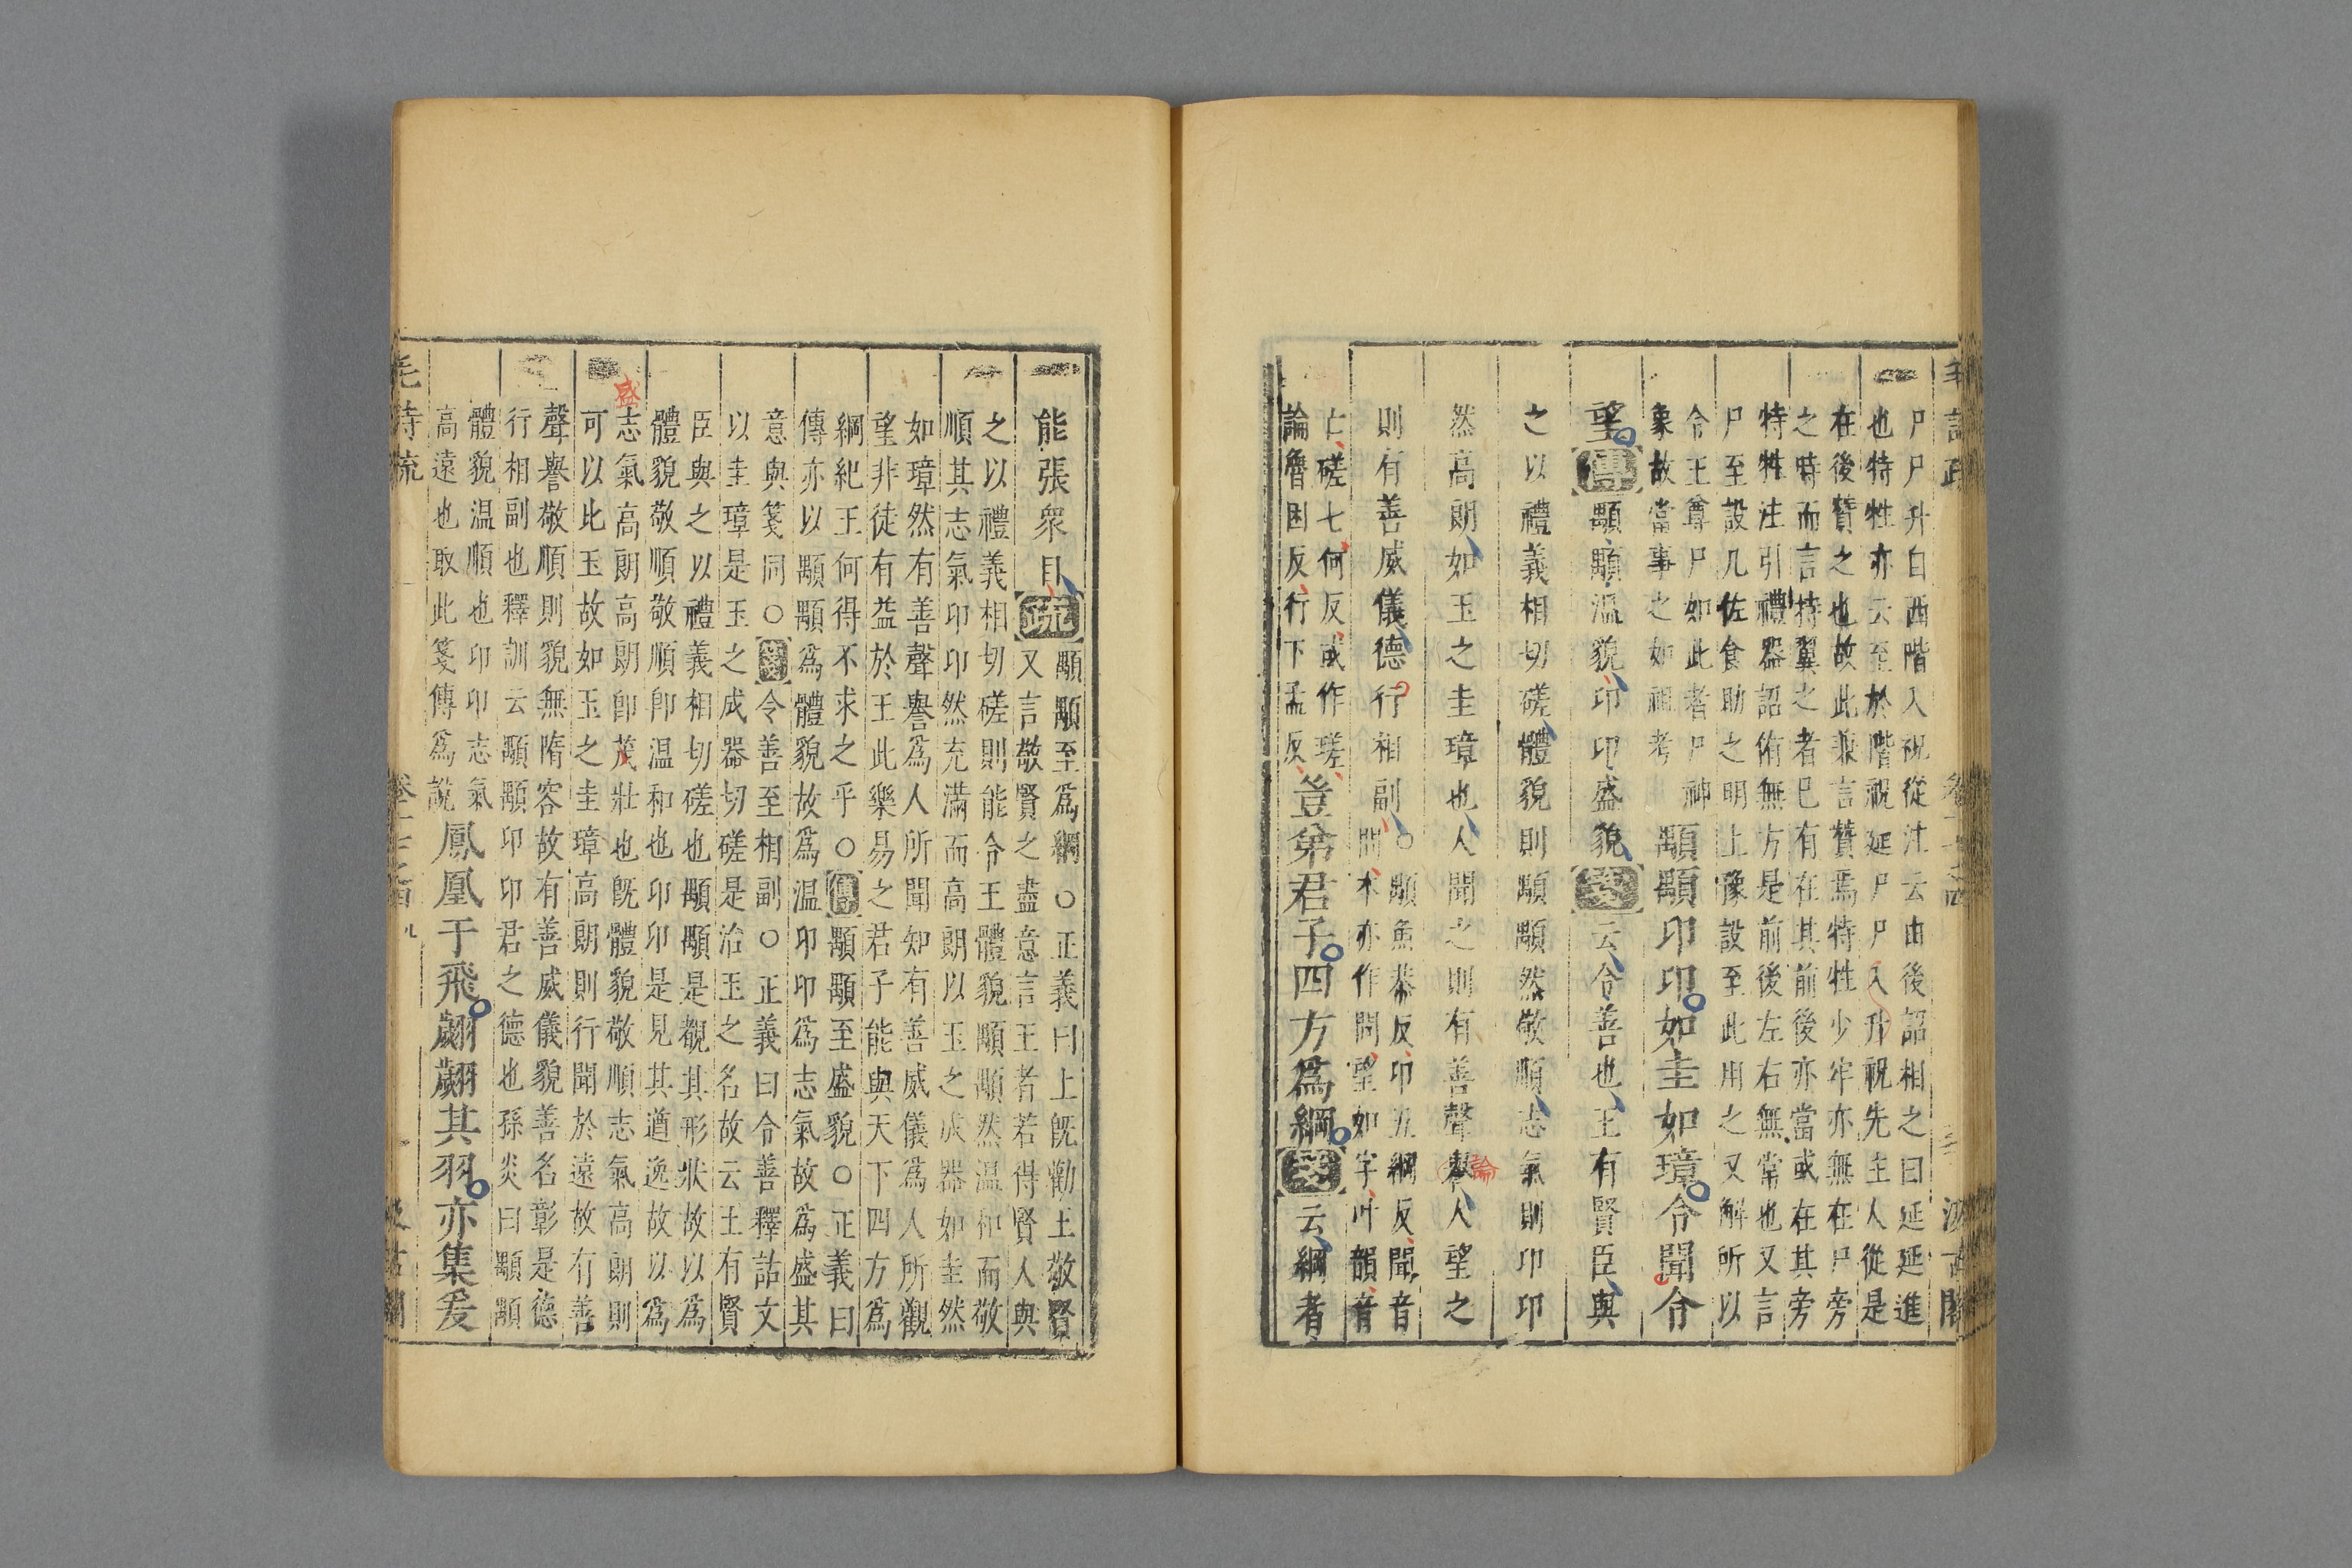 尸尸升自西階入祝從注云由後詔相之曰延延進
也特牲亦云至於階祝延尸尸入升祝先主人從是
在後贊之也故此兼言贊焉特牲少牢亦無在尸旁
之時而言持翼之者已有在其前後亦當或在其旁
特牲注引禮器詔侑無方是前後左右無常也又言
尸至設几佐食助之明上豫設至此用之又解所以
令王尊尸如此者尸神
象故當事之如祖考
顒顒卬卬如圭如璋令聞令
望傳顒顒溫貌卬卬盛貌箋云令善也王有賢臣與
之以禮義相切磋體貌則顒顒然敬順志氣則卬卬
然高朗如玉之圭璋也人聞之則有善聲譽人望之
論
則有善威儀德行相副○顒魚恭反卬五綱反聞音
問本亦作問望如字叶韻音
亡磋七何反或作瑳
論魯困反行下孟反
豈弟君子四方爲綱箋云綱者
毛詩疏
卷十七之四
汲古閣
能張衆目疏顒顒至爲綱○正義曰上旣勸王敬賢
又言敬賢之盡意言王者若得賢人與
之以禮義相切磋則能令王體貌顒顒然溫和而敬
順其志氣卬卬然充滿而高朗以玉之成器如圭然
如璋然有善聲譽爲人所聞知有善威儀爲人所觀
望非徒有益於王此樂易之君子能與天下四方爲
綱紀王何得不求之乎○傳顒顒至盛貌○正義曰
傳亦以顒顒爲體貌故爲溫卬卬爲志氣故爲盛其
意與箋同○箋令善至相副○正義曰令善釋詁文
以圭璋是玉之成器切磋是治玉之名故云王有賢
臣與之以禮義相切磋也顒顒是觀其形狀故以爲
體貌敬順敬順卽溫和也卬卬是見其遒逸故以爲
志氣高朗高朗卽茂壯也旣體貌敬順志氣高朗則
盛
可以比玉故如玉之圭璋高朗則行聞於遠故有善
聲譽敬順則貌無隋容故有善威儀貌善名彰是德
行相副也釋訓云顒顒卬卬君之德也孫炎曰顒顒
體貌溫順也卬卬志氣
高遠也取此箋傳爲說
鳳凰于飛翽翽其羽亦集爰
毛詩疏
卷十七之四
九
汲古閣